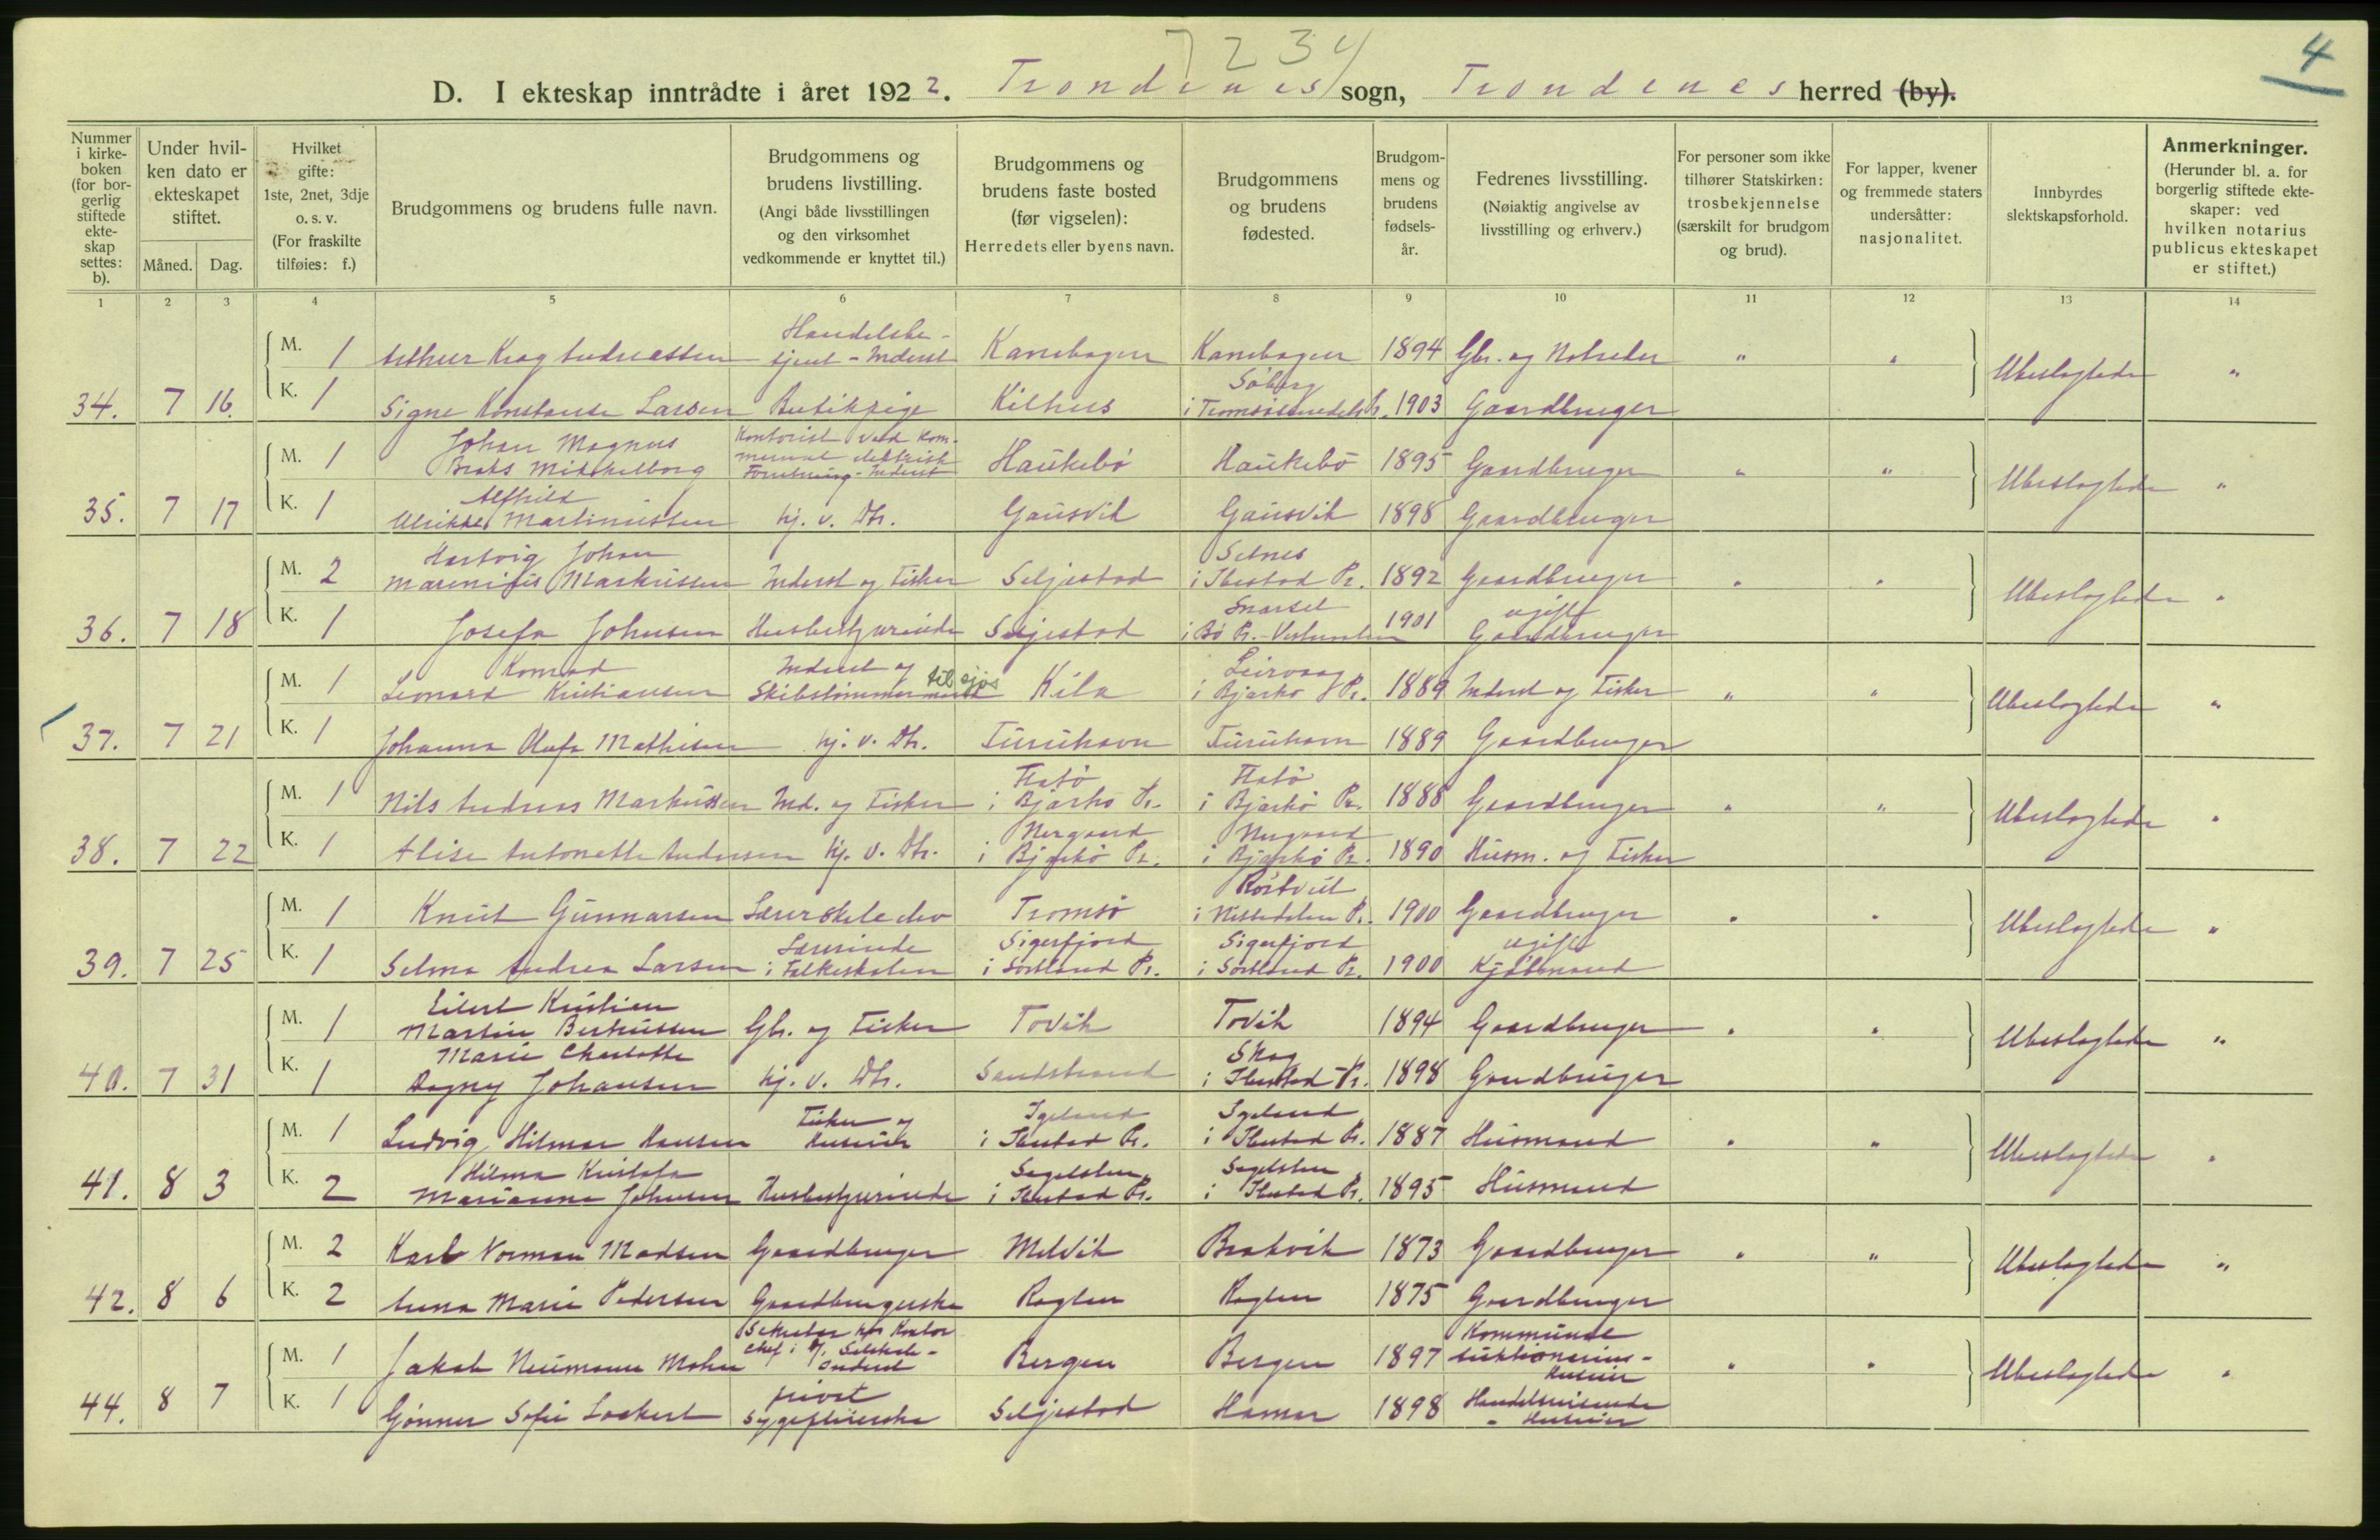 7234
4
D. I ekteskap inntrådte i året 1922. Trondenes sogn, Trondenes herred (by).
Nummer i kirke-boken (for bor-gerlig stiftede ekte-skap settes: b).
Under hvil-ken dato er ekteskapet stiftet.
Måned. Dag.
Hvilket gifte: 1ste, 2net, 3dje o. s. v. (For fraskilte tilføies: f.)
Brudgommens og brudens fulle navn.
Brudgommens og brudens livstilling. (Angi både livsstillingen og den virksomhet vedkommende er knyttet til.)
Brudgommens og brudens faste bosted (før vigselen): Herredets eller byens navn.
Brudgommens og brudens fødested.
Brudgom-mens og brudens fødsels-år.
Fedrenes livsstilling. (Nøiaktig angivelse av livsstilling og erhverv.)
For personer som ikke tilhører Statskirken: trosbekjennelse (særskilt for brudgom og brud).
For lapper, kvener og fremmede staters undersåtter: nasjonalitet.
Innbyrdes slektskapsforhold.
Anmerkninger. (Herunder bl. a. for borgerlig stiftede ekte-skaper: ved hvilken notarius publicus ekteskapet er stiftet.)
1 2 3 4 5 6 7 8 9 10 11 12 13 14
M. 1 Arthur Krag Andreassen Handelsbe-tjent - Inderst Kanebogen Kanebogen 1894 Gbr. og Notreder " " Ubeslægtede "
34. 7 16. K. 1 Signe Konstanse Larsen Butikpige Kilhus Søberg 1903 Gaardbruger
M. 1 Johan Magnus Brøks Mikkelborg Kontorist ved kom-munal elektrisk Forretning - Inderst Haukebø Haukebø 1895 Gaardbruger " " Ubeslægtede "
35. 7 17 K. 1 Alfhild Ulrikke Martinussen hj. v. Dtr. Gausvik Gausvik 1898 Gaardbruger
M. 2 Hartvig Johan Marenius Markussen Inderst og Fisker Seljestad Selnes i Ibestad Pr. 1892 Gaardbruger " " Ubeslægtede "
36. 7 18 K. 1 Josefa Johnsen Husbestyrerinde Seljestad i Bø Pr. - 1901 ugift Gaardbruger
M. 1 Konrad Leonard Kristiansen Inderst og Skibstømmermand til sjøs Kila Leirvaag i Bjarkø Pr. 1889 Inderst og Fisker " " Ubeslægtede "
37. 7 21 K. 1 Johanna Olufa Mathisen hj. v. Dtr. 1889 Gaardbruger
M. 1 Nils Andreas Markussen Ind. og Fisker Flatø i Bjarkø Pr. Flatø i Bjarkø Pr. 1888 Gaardbruger " " Ubeslægtede "
38. 7 22 K. 1 Alise Antonette Andersen hj. v. Dtr. Nergaard i Bjarkø Pr. Nergaard i Bjarkø Pr. 1890 Husm. og Fisker
M. 1 Knut Gunnarsen Lærerskoleelev Tromsø i Nissedalen Pr. 1900 Gaardbruger " " Ubeslægtede "
39. 7 25 K. 1 Selma Andrea Larsen Lærerinde i Folkeskolen Sigerfjord i Sortland Pr. Sigerfjord i Sortland Pr. 1900 ugift Kjøbmand
M. 1 Eilert Kristian Martin Berthussen Gbr. og Fisker Tovik Tovik 1894 Gaardbruger " " Ubeslægtede "
40. 7 31 K. 1 Marie Charlotte Dagny Johansen hj. v. Dtr. Sandstrand Skog i Ibestad Pr. 1898 Gaardbruger
M. 1 Ludvig Hilmar Hansen Fisker og Husmand Igeland i Ibestad Pr. Igeland i Ibestad Pr. 1887 Husmand " " Ubeslægtede "
41. 8 3 K. 2 Hilma Kristofa Marianna Johnsen Husbestyrerinde Sagelven i Ibestad Pr. Sagelven i Ibestad Pr. 1895 Husmand
M. 2 Karl Norman Madsen Gaardbruger Melvik Brokvik 1873 Gaardbruger " " Ubeslægtede "
42. 8 6 K. 2 Anna Marie Pedersen Gaardbrugerske Røglen Røglen 1875 Gaardbruger
M. 1 Jakob Neumann Mohn Sekretær hos Kontor-chef i Bergen Bergen 1897 Kommune auktionarius - " " Ubeslægtede "
44. 8 7 K. 1 Gjønner Sofie Lockert privat Sygepleierske Seljestad Hamar 1898 Handelsreisende